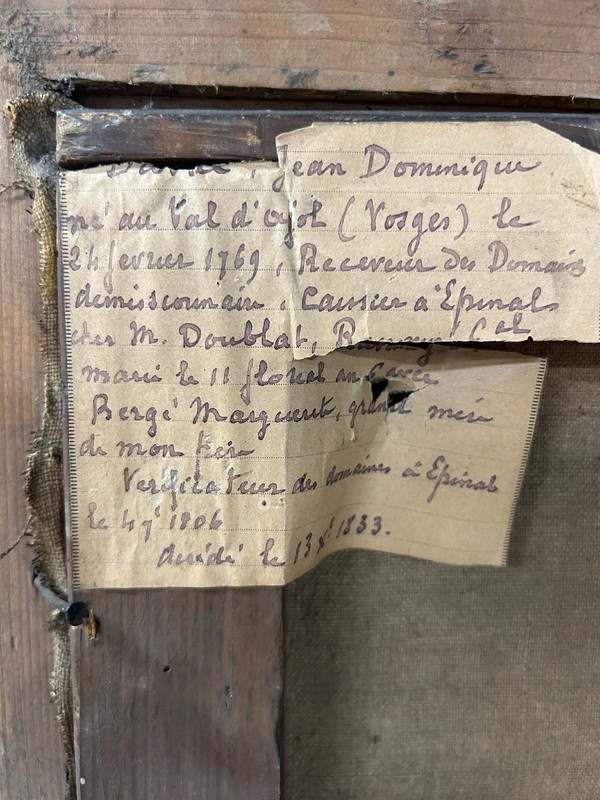 Jean Dominique
né au Val d'Ajol (Vosges) le
24 fevrier 1769, Receveur des Domaines
demissionnaire. Caissier à Epinal
chez M. Doublat, Gal
marié le 11 floreal an 6 avec
Bergé Marguerite, grand mère
de mon père
Verificateur des domaines à Epinal
le 4 1806
décédé le 13 Xe 1833.